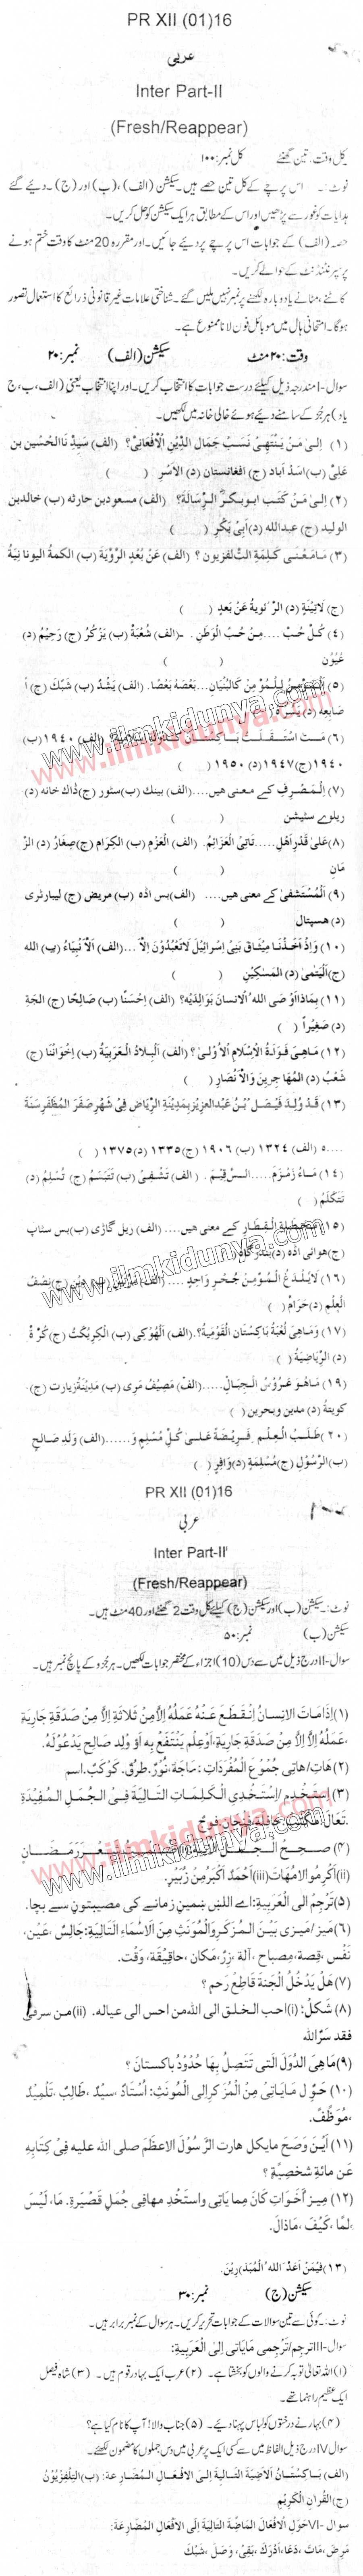 PR XII (01)16
عربی
Inter Part-II
(Fresh/Reappear)
کل وقت: تین گھنٹے کل نمبر: ۱۰۰
نوٹ:۔ اس پرچے کے کل تین حصے ہیں۔ سیکشن (الف)، (ب) اور (ج)۔ دیئے گئے
ہدایات کو غور سے پڑھیں اور اس کے مطابق ہر ایک سیکشن کو حل کریں۔
حصہ (الف) کے جوابات اس پرچے پر دیئے جائیں۔ اور مقررہ 20 منٹ کا وقت ختم ہونے
پر سپرنٹنڈنٹ کے حوالے کریں۔
کاٹنے، مٹانے یا دوبارہ لکھنے پر نمبر نہیں ملیں گے۔ شناختی علامات غیر قانونی ذرائع کا استعمال تصور
ہوگا۔ امتحانی ہال میں موبائل فون لانا ممنوع ہے۔
وقت: ۲۰ منٹ سیکشن (الف) نمبر: ۲۰
سوال-I مندرجہ ذیل کیلئے درست جوابات کا انتخاب کریں۔ اور اپنا انتخاب یعنی (الف، ب، ج
یا د) ہر جز کے سامنے دیئے ہوئے خالی خانہ میں لکھیں۔
(۱) اِلیٰ مَنْ یَنْتَهِیْ نَسَبُ جَمَالِ الدِّیْنِ الْاَفْغَانِیْ؟ (الف) سَیِّدِ نَاالْحُسَیْنِ بن
عَلِیْ (ب) اسْدُ اٰباد (ج) افغانستان (د) الأسْرِ ( )
(۲) اِلیٰ مَنْ کَتَبَ ابوبکرٍ الرِّسَالَةَ؟ (الف) مسعود بن حارثه (ب) خالد بن
الولید (ج) عبدالله (د) أَبِیْ بَکْرٍ ( )
(۳) مَامَعْنٰی کَلِمَةِ التِّلْفِزیُون ؟ (الف) عَنْ بُعْدِ الرُّوْیَةِ (ب) الکلمةُ الیونانِیَّةُ
(ج) لَاتِیْنَةِ (د) الرُّئویةُ عَنْ بُعْدٍ ( )
(۴) کُلُّ حُبٌّ ....مِنْ حُبِّ الْوَطَنِ. ۔(الف) شُعْبَةٌ (ب) یَزْکُرُ (ج) رَحِیْمٌ (د)
عُیُوْن ( )
(۵) اَلْمُوْمِنُ لِلْمُوْمِنِ کَالْبُنْیَانِ...بَعْضُهٗ بَعْضًا. (الف) یَشُدُّ (ب) شَبَّکَ (ج) اَ
صَابِعِهٖ (د)
(۶) مَتٰی اسْتَقَلَّتْ بَاکِسْتَانُ (الف) ۱۹۴۰ (ب)
۱۹۴۰ (ج) ۱۹۴۷ (د) ۱۹۵۰ ( )
(۷) اِلْمَصْرِفِ کے معنی هیں....(الف) بینك (ب) سٹور (ج) ڈاك خانه (د)
ریلوے سٹیشن ( )
(۸) عَلیٰ قَدْرِ اَهْلِ.....تَاتِیْ الْعَزَائِمُ. (الف) الْعَزْمِ (ب) الکِرَام (ج) صِغَارُ (د) الزَّ
مَان ( )
(۹) اَلْمُسْتَشْفیٰ کے معنی هیں....(الف) بس اڈه (ب) مریض (ج) لیبارٹری
(د) هسپتال ( )
(۱۰) وَاِذْ اَخَذْنَا مِیْثَاقَ بَنِیْ اِسْرَائِیْلَ لَاتَعْبُدُوْنَ اِلَّا...(الف) اَلْاَ نْبِیَاءُ (ب) الله
(ج) اَلْیَتٰمٰی (د) الْمَسٰکِیْنِ ( )
(۱۱) بِمَاذَااَوْ صَی اللهُ الْاَنسانَ بِوَالِدَیْهِ؟ (الف) اِحْسَنًا (ب) صَالِحًا (ج) الْجَنَّةِ
(د) صَغِیْراً ( )
(۱۲) مَاهِیَ قَوَدَةُ الْاِسْلَامِ الْاُوْلیٰ؟ (الف) اَلْبِلَادُ الْعَرَبِیَّةُ (ب) اِخْوَانُنَا (ج)
شَعْبُ (د) الْمُهَاجِرِیْنَ وَالْاَ نْصَار ( )
(۱۳) قَدْ وُلِدَ فَیْصَل بْنُ عَبْدِالْعَزِیْزِ بِمَدِیْنَةِ الرِّیَاضِ فِیْ شَهْرِ صَفَرَ الْمُظَفَّرِ سَنَةَ
.....ه (الف) ۱۳۲۴ (ب) ۱۹۰۶ (ج) ۱۳۳۵ (د) ۱۳۷۵ ( )
(۱۴) مَاءُ زَمْزَمَ .....السَّقِیْمَ . (الف) تَشْفِیْ (ب) تَبْتَسِمُ (ج) تُسْلِمُ (د)
تَتَکَلَّمُ ( )
(۱۵) مَحَطَّةِ الْقِطَارِ کے معنی هیں....(الف) ریل گاڑی (ب) بس سٹاپ
(ج) هوائی اڈه (د) بندرگاه ( )
(۱۶) لَایُلْدَغُ الْمُؤمِنُ جُحْرٍ وَاحِدٍ ....(الف) (ج) نِصْفُ
الْعِلْمِ (د) حَرَامٌ ( )
(۱۷) وَمَاهِیَ لُعْبَةُ بَاکِسْتَان الْقَوْمِیَّةُ؟.(الف) اَلْهُوْکِی (ب) اَلکِرِیکَٹ (ج) کُرَ ةُ
(د) الرِّیَاضِیَّةُ ( )
(۱۹) مَاهُوَ عَرُوْسُ الْجِبَالِ.....(الف) مَصِیْفُ مَری (ب) مَدِیْنَةُ زیارت (ج)
کویٹة (د) مدین وبحرین ( )
(۲۰) طَلَبُ الْعِلْمِ فَرِیْضَةٌ عَلیٰ کُلِّ مُسْلِمٍ وَ......(الف) وَلَدٍ صَالِحٍ
(ب) الرَّسُوْلِ (ج) مُسْلِمَةٍ (د) وَافِرٍ ( )
PR XII (01)16
عربی
Inter Part-II
(Fresh/Reappear)
نوٹ:۔ سیکشن (ب) اور سیکشن (ج) کیلئے کل وقت 2 گھنٹے اور 40 منٹ ہیں۔
سیکشن (ب) نمبر: ۵۰
سوال-II درج ذیل میں سے دس (10) اجزاء کے مختصر جوابات لکھیں۔ ہر جزو کے پانچ نمبر ہیں۔
(۱) اِذَامَاتَ الانسانُ اِنْقَطَعَ عَنْهُ عَمَلُهُ اِلَّامِنْ ثَلَاثَةٍ اِلَّا مِنْ صَدَقَةٍ جَارِیَةٍ
،عَمَلُهُ اِلَّا اِلَّا مِنْ صَدَقَةٍ جَارِیَةٍ،اَوْعِلْمٍ یَنْتَفَعُ بِهٖ اَوْ وَلَدٍ صَالِحٍ یَدْعُوْلَهُ.
(۲) هَاتِ/هَاتِی جُمُوْعَ الْمُفْرَدَاتِ: مَاجَةٌ، نُوْرٌ، طُرُقٌ، کَوْکَبٌ، اسم
(۳) اِسْتَخْدِمْ/اِسْتَخْدِی الْکَلِمَاتِ التَّالِیَةَ فِیْ الْجُمَلِ الْمُفِیْدَةِ
تَعَالَ، مَکْتَبٌ، حَافِلَةٌ، فِنْجَانٌ، فَوْجٌ
(۴) صَحِحُ الْجُمَلَ رَمَضَانَ
(ii) اَکْرِمُوالامُهَاتِ (iii) اَحْمَدُ اَکْبَرُمِنْ زُبَیْرٍ.
(۵) تَرْجِمْ الی الْعَرَبِیَةِ: اے اللہ! ہمیں زمانے کی مصیبتوں سے بچا۔
(۶) مَیِّز/مَیِّزِی بَیْنَ الْمُذَکَّرِوَالْمُوَنَّثِ مِنَ الْاَسْمَاءِ التَّالِیَةِ: جَالِسٌ، عَیْنٌ،
نَفْسٌ، قِصَّة، مِصباح، آلة، زِرٌّ، مَکَان، حَاقِیْقَةٌ، وَقْت.
(۷) هَلْ یَدْخُلُ الْجَنَّةَ قَاطِعُ رَحِمٍ ؟
(۸) شَکِّلْ: (i) احب الخلق الی الله من احس الی عیاله. (ii) من سرنی
فقد سَرَّالله
(۹) مَاهِیَ الدُّوَلُ الَّتی تَتَّصِلُ بِهَا حُدُوْدُ باکستان ؟
(۱۰) حَوِّ ل مَایَاتِیْ مِنَ الْمُذَ کَّرِالی الْمُونَثِ: اُسْتَاذٌ، سیْدٌ، طَالِبٌ، تِلْمِیْذٌ
،مُوَظَّفٌ.
(۱۱) أَیْنَ وَضَعَ مایکل هارت الرَّ سُوْلَ الاعظَمَ صلی الله علیه فِیْ کِتَابِهٖ
عَن مائةِ شخصیةٍ ؟
(۱۲) مَیِّزْ اَخَوَاتِ کَانَ مما یاتی واستَخْدِ مهافی جُمَلٍ قَصِیْرَةٍ. مَا، لَیْسَ
،لَمَّا ،کَیْفَ ،مَاذَالَ.
(۱۳) فِیْمَنْ اَعَدَّ اللهُ الْمُبَذِّ رِیْنَ.
سیکشن (ج) نمبر: ۳۰
نوٹ:۔ کوئی سے تین سوالات کے جوابات تحریر کریں۔ ہر سوال کے نمبر برابر ہیں۔
سوال-III ترجم/ترجمی مَایَاتِی اِلَیٰ الْعَرَبِیَةِ:
(۱) اللہ تعالیٰ توبہ کرنے والوں کو بخشتا ہے۔ (۲) عرب ایک بہادر قوم ہیں۔ (۳) شاہ فیصل
ایک عظیم راہنما تھے۔
(۴) بہار نے درختوں کو لباس پہنا دیئے۔ (۵) جناب والا! آپ کا نام کیا ہے؟
سوال IV درج ذیل الفاظ میں سے کسی ایک پر عربی میں دس جملوں کا مضمون لکھئے۔
(الف) بَاکِسْتَانُ اَلْاضِیَةَ التَّالِیَةَ اِلیٰ الافعَالِ الْمُضَارِعَةَ: (ب) اَلتِّلِفِزْیُوْنُ
(ج) القُراٰن الْکَرِیْم
سوال -VI حَوِّلِ الْافْعَالَ الْمَاضِیَّةَ التَّالِیَةَ اِلَی الْاَفْعَالِ الْمُضَارِعَةِ:
مَرِضَ، مَاتَ ، دَعَا، اَدْرَکَ ،بَقِیَ، وَصَلَ ،شَبَّكَ
www.ilmkidunya.com
www.ilmkidunya.com
www.ilmkidunya.com
www.ilmkidunya.com
www.ilmkidunya.com
www.ilmkidunya.com